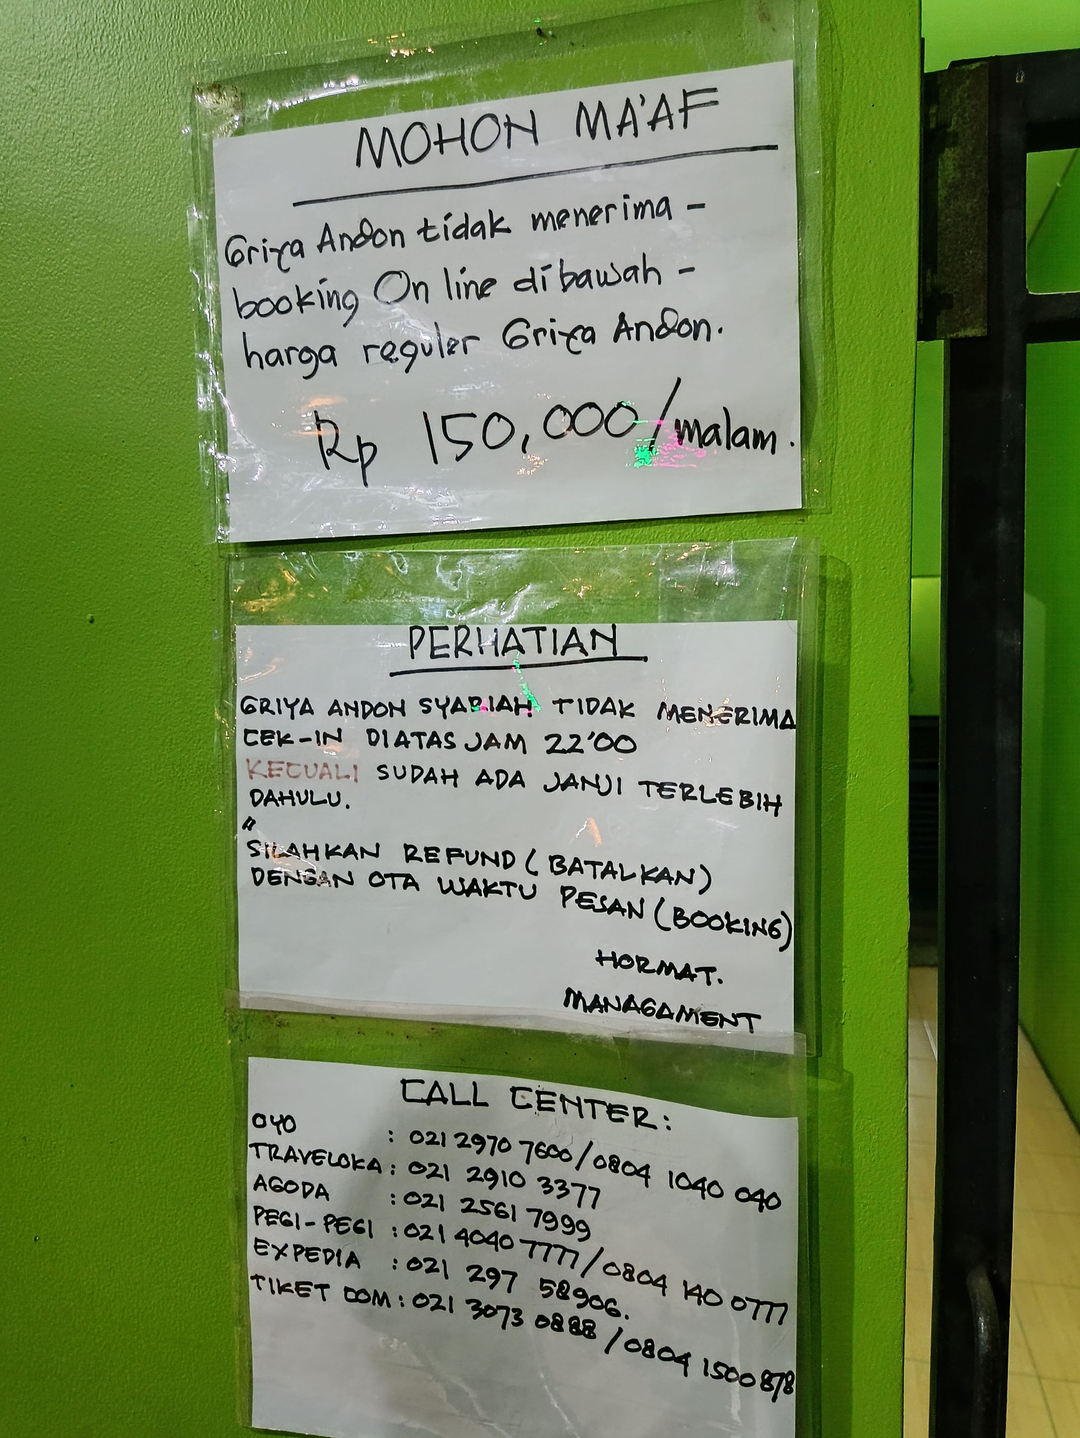 MOHON MA'AF
Griya Andon tidak menerima -
booking On line dibawah -
harga reguler Griya Andon.
Rp 150,000/malam.
PERHATIAN
GRIYA ANDON SYARIAH TIDAK MENERIMA
CEK-IN DIATAS JAM 22'00
KECUALI SUDAH ADA JANJI TERLEBIH
DAHULU.
"
SILAHKAN REFUND (BATALKAN)
DENGAN OTA WAKTU PESAN (BOOKING)
HORMAT.
MANAGAMENT
CALL CENTER:
OYO : 021 2970 7600/0804 1040 040
TRAVELOKA : 021 2910 3377
AGODA : 021 2561 7999
PEGI-PEGI : 021 4040 7777/0804 140 0777
EXPEDIA : 021 297 58906.
TIKET COM : 021 3073 0888 /0804 1500 878